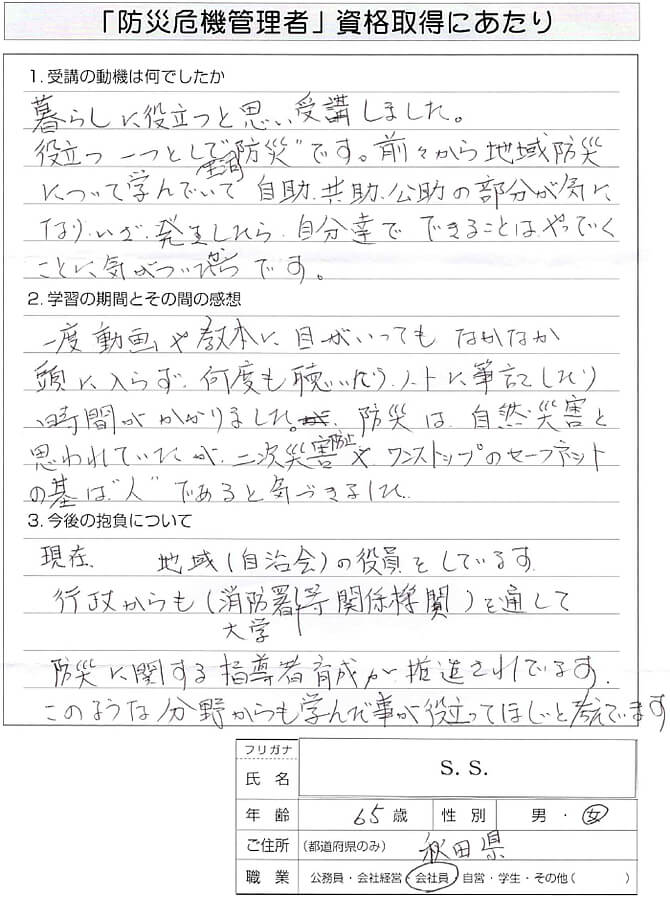 「防災危機管理者」資格取得にあたり
1. 受講の動機は何でしたか
暮らしに役立つと思い、受講しました。
役立つ一つとして"防災"です。前々から地域防災
について学んでいて 自助、共助、公助の部分が気に
なり、いざ、発生したら、自分達で できることは、やっていく
ことに気がついたからです。
2. 学習の期間とその間の感想
一度動画や教本に目がいっても なかなか
頭に入らず、何度も聴いたり、ノートに筆記したり
時間がかかりました。防災は、自然災害と
思われていたが、二次災害防止や、ワンストップのセーフネット
の基は"人"であると気づきました。
3. 今後の抱負について
現在、 地域(自治会)の役員をしています。
行政からも(消防署等関係機関)を通して
大学
防災に関する指導者育成が推進されています。
このような分野からも学んだ事が役立ってほしいと考えています
フリガナ
氏名 S. S.
年齢 65歳 性別 男・女
ご住所 (都道府県のみ) 秋田県
職業 公務員・会社経営・会社員・自営・学生・その他( )